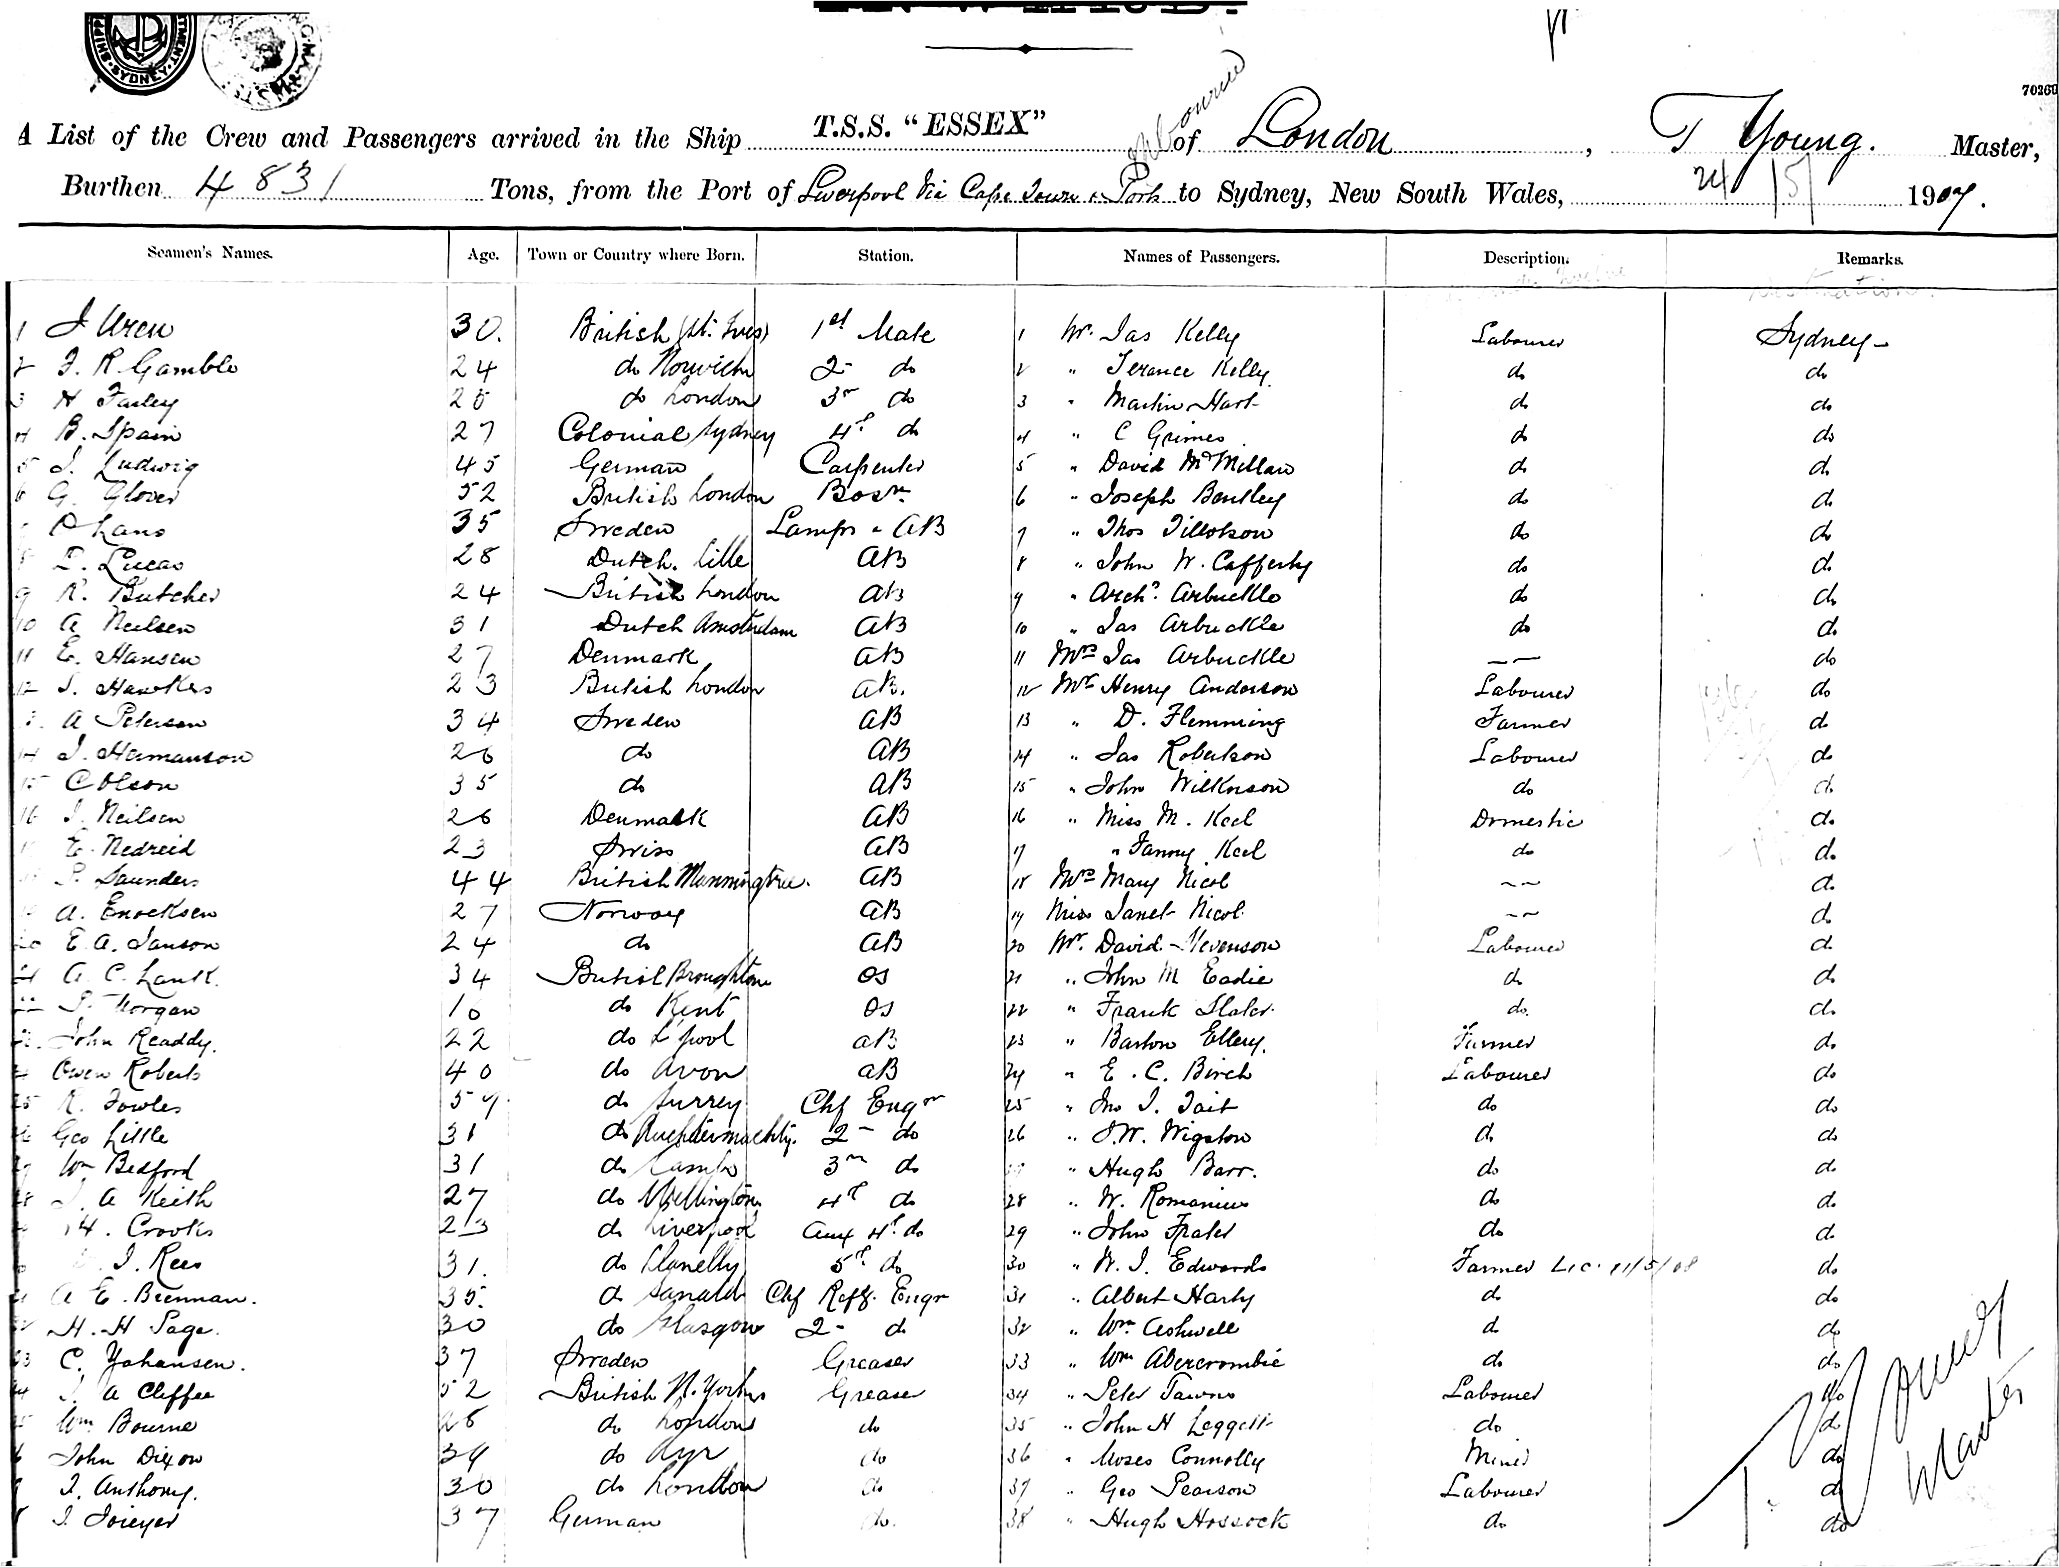 SYDNEY
70260
A List of the Crew and Passengers arrived in the Ship T.S.S. "ESSEX" of London, T Young. Master,
Burthen 4831 Tons, from the Port of Liverpool Via Cape Town & Ports to Sydney, New South Wales, 24/5/ 1907.
Seamen's Names. Age. Town or Country where Born. Station. Names of Passengers. Description. Remarks.
1 J Uren 30. British (St. Ives) 1st Mate 1 Mr. Jas Kelly Labourer Sydney
2 F. R. Gamble 24 do Norwich 2 do 2 " Terence Kelly do do
3 H Farley do London 3r do 3 " Martin Hart do do
4 B. Spain 27 Colonial Sydney 4th do 4 " C Grimes do do
5 J. Ludwig 45 German Carpenter 5 " David McMillan do do
6 G. Glover 52 British London Bosn 6 " Joseph Bentley do do
O Lans 35 Sweden Lamps & AB 7 " Thos Tillotson do do
8 Lucas 28 Dutch. Lille AB 8 " John W. Cafferty do do
9 R. Butcher 24 British London AB 9 " Archd. Arbuckle do do
10 A Neilsen 31 Dutch Amsterdam AB 10 " Jas Arbuckle do do
11 E. Hansen 27 Denmark AB 11 Mrs Jas Arbuckle do
12 J. Hawkes 23 British London AB. 12 Mr Henry Anderson Labourer do
A Peterson 34 Sweden AB 13 " D. Flemming Farmer do
14 J. Hermanson 26 do AB 14 " Jas Robertson Labourer do
15 C Olson 35 do AB 15 " John Wilkinson do do
16 J. Neilsen 26 Denmark AB 16 " Miss M. Keel Domestic do
E. Nedreid 23 Swiss AB 17 " Fanny Keel do do
Saunders 44 British Manningtree. AB 18 Mrs Mary Nicol do
A. Enocksen 27 Norway AB 19 Miss Janet Nicol do
20 E. A. Janson 24 do AB 20 Mr. David Stevenson Labourer do
21 A. C. Lank. 34 British Broughton OS 21 " John M Eadie do do
22 Morgan 16 do Kent OS 22 " Frank Slater do do
John Readdy. 22 do L'pool AB 23 " Barton Ellery. Farmer do
Owen Roberts 40 do Avon AB 24 " E. C. Birch Labourer do
25 R. Fowles 59 do Surrey Chf Engr 25 " Jno J. Tait do do
Geo Little 31 do 2 do 26 " J.W. Wigston do do
Wm Bedford 31 do 3rd do " Hugh Barr. do do
J. A Keith 27 do Wellington 4th do 28 " W. Romanius do do
H. Crooks 23 do Liverpool Aux 4th do 29 " John Frater do do
J. Rees 31. do Llanelly 5th do 30 " W. J. Edwards Farmer do
A E. Brennan. 35. do Chf Refg. Engr 31 " Albert Harty do do
H. H Page. 30 do Glasgow 2 do 32 " Wm. Ashwell do do
33 C. Yohansen. 37 Sweden Greaser 33 " Wm Abercrombie do do
A Cliffee 52 British N. Yorks Greaser 34 " Peter Tawns Labourer do
Wm Bourne do London do 35 " John H Leggett do do
John Dixon 39 do Ayr do 36 " Moses Connolly Miner do
J. Anthony. 30 do London do 37 " Geo Pearson Labourer do
37 German do. 38 " Hugh Hossock do do
T. Young
Master